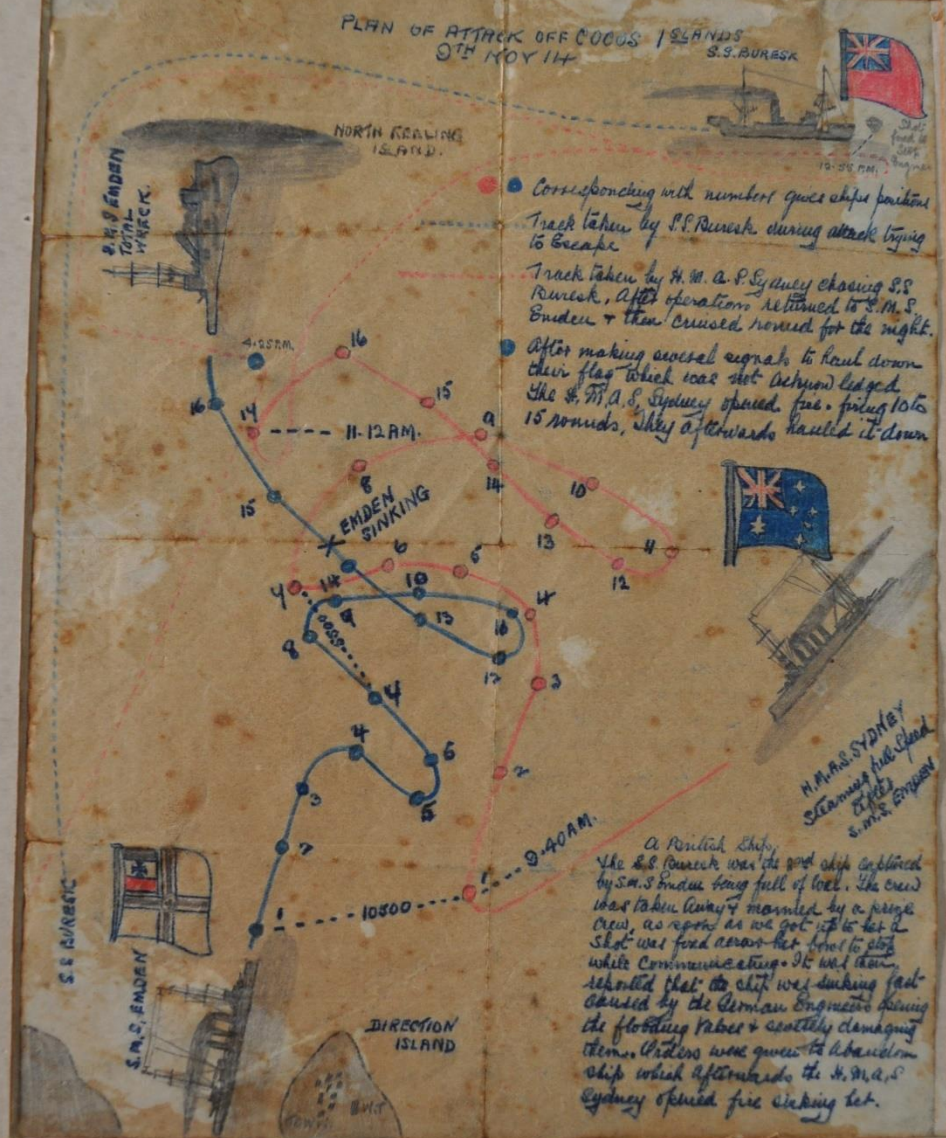 PLAN OF ATTACK OFF COCOS ISLANDS
9TH NOV 14
S.S. BURESK
Shot
fired to
10-55 A.M.
NORTH KEELING
ISLAND.
S.M.S EMDEN
TOTAL
WRECK.
Corresponding with numbers gives ships positions
Track taken by S.S. Buresk during attack trying
to Escape
Track taken by H.M.A.S. Sydney chasing S.S
Buresk, After operations returned to S.M.S.
Emden & then cruised round for the night.
After making several signals to haul down
their flag which was not acknowledged
The H.M.A.S. Sydney opened fire. firing 10 to
15 rounds, They afterwards hauled it down
4.25 P.M.
16
15
16
14
11-12 AM.
9
8
14
10
15
EMDEN
SINKING
13
11
12
6
5
10
4
14
9
13
8
12
3
4
4
6
2
5
3
H.M.A.S. SYDNEY
Steaming full Speed
after
S.M.S. EMDEN
9.40 AM.
1
10500
1
S.S BURESK
S.M.S. EMDEN
DIRECTION
ISLAND
A British Ship,
The S.S. Buresk was the ship captured
by S.M.S Emden being full of Coal. The crew
was taken away & manned by a prize
crew, as soon as we got up to her a
shot was fired across her bows to stop
while Communicating. It was then
reported that the ship was sinking fast
caused by the German Engineers opening
the flooding valves & damaging
them. Orders were given to abandon
ship which afterwards the H.M.A.S
Sydney opened fire sinking her.